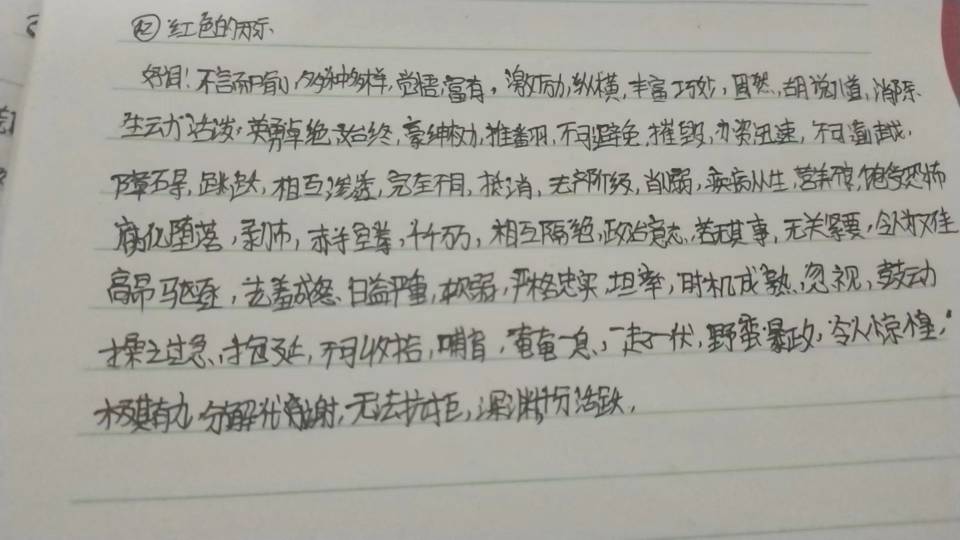 ② 红色的
好词！不言而喻，多种多样，觉悟，富有，激励，纵横，丰富，巧妙，固然，胡说八道，消除
生动活泼，英勇卓绝，始终，豪绅，权力，推翻，不可避免，摧毁，迅速，不可逾越，
相互渗透，完全不同，抵消，无产阶级，削弱，疾病丛生，营养不良，饱受恐怖
腐化堕落，剥削，赤手空拳，千千万万，相互隔绝，政治意志，若无其事，无关紧要，
高昂，驱逐，恼羞成怒，日益严重，软弱，严格，忠实，时机成熟，忽视，鼓动
操之过急，拖延，不可收拾，哺育，奄奄一息，野蛮暴政，令人惊惶，
极其有力，分解代谢，无法抗拒，深渊，十分活跃，